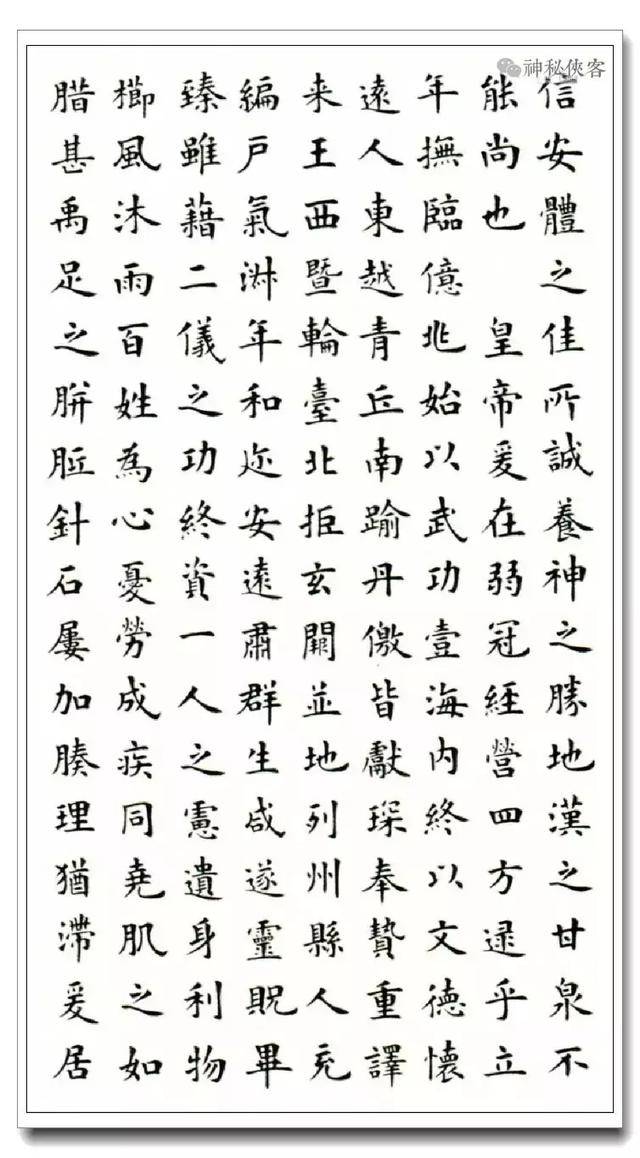 神秘俠客
信安體之佳所誠養神之勝地漢之甘泉不
能尚也 皇帝爰在弱冠經營四方逮乎立
年撫臨億兆始以武功壹海内終以文德懷
遠人東越青丘南踰丹徼皆獻琛奉贄重譯
来王西暨輪臺北拒玄闕並地列州縣人充
編戶氣淑年和迩安遠肅群生咸遂靈貺畢
臻雖藉二儀之功終資一人之慮遺身利物
櫛風沐雨百姓為心憂勞成疾同堯肌之如
腊甚禹足之胼胝針石屢加腠理猶滯爰居